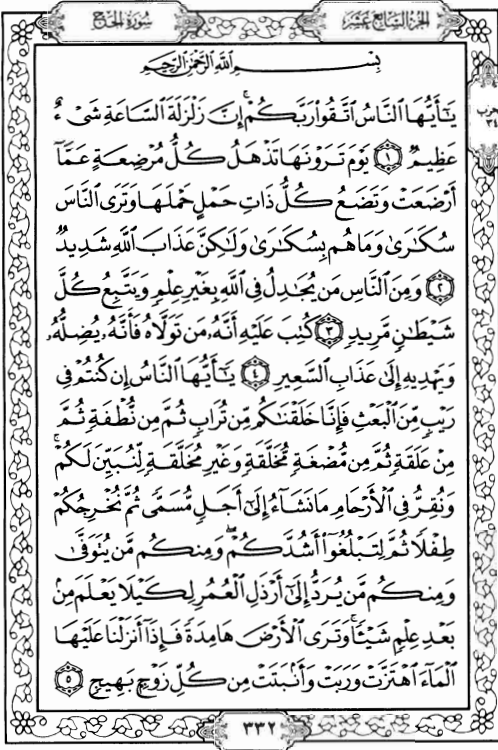 سُورَةُ الحَجّ
الجُزْءُ السَّابِعَ عَشَرَ
بِسْمِ ٱللَّهِ ٱلرَّحْمَٰنِ ٱلرَّحِيمِ
يَٰٓأَيُّهَا ٱلنَّاسُ ٱتَّقُوا۟ رَبَّكُمْ ۚ إِنَّ زَلْزَلَةَ ٱلسَّاعَةِ شَىْءٌ
عَظِيمٌ ١ يَوْمَ تَرَوْنَهَا تَذْهَلُ كُلُّ مُرْضِعَةٍ عَمَّآ
أَرْضَعَتْ وَتَضَعُ كُلُّ ذَاتِ حَمْلٍ حَمْلَهَا وَتَرَى ٱلنَّاسَ
سُكَٰرَىٰ وَمَا هُم بِسُكَٰرَىٰ وَلَٰكِنَّ عَذَابَ ٱللَّهِ شَدِيدٌ
٢ وَمِنَ ٱلنَّاسِ مَن يُجَٰدِلُ فِى ٱللَّهِ بِغَيْرِ عِلْمٍ وَيَتَّبِعُ كُلَّ
شَيْطَٰنٍ مَّرِيدٍ ٣ كُتِبَ عَلَيْهِ أَنَّهُۥ مَن تَوَلَّاهُ فَأَنَّهُۥ يُضِلُّهُۥ
وَيَهْدِيهِ إِلَىٰ عَذَابِ ٱلسَّعِيرِ ٤ يَٰٓأَيُّهَا ٱلنَّاسُ إِن كُنتُمْ فِى
رَيْبٍ مِّنَ ٱلْبَعْثِ فَإِنَّا خَلَقْنَٰكُم مِّن تُرَابٍ ثُمَّ مِن نُّطْفَةٍ ثُمَّ
مِنْ عَلَقَةٍ ثُمَّ مِن مُّضْغَةٍ مُّخَلَّقَةٍ وَغَيْرِ مُخَلَّقَةٍ لِّنُبَيِّنَ لَكُمْ ۚ
وَنُقِرُّ فِى ٱلْأَرْحَامِ مَا نَشَآءُ إِلَىٰٓ أَجَلٍ مُّسَمًّى ثُمَّ نُخْرِجُكُمْ
طِفْلًا ثُمَّ لِتَبْلُغُوٓا۟ أَشُدَّكُمْ ۖ وَمِنكُم مَّن يُتَوَفَّىٰ
وَمِنكُم مَّن يُرَدُّ إِلَىٰٓ أَرْذَلِ ٱلْعُمُرِ لِكَيْلَا يَعْلَمَ مِنۢ
بَعْدِ عِلْمٍ شَيْـًٔا ۚ وَتَرَى ٱلْأَرْضَ هَامِدَةً فَإِذَآ أَنزَلْنَا عَلَيْهَا
ٱلْمَآءَ ٱهْتَزَّتْ وَرَبَتْ وَأَنۢبَتَتْ مِن كُلِّ زَوْجٍۭ بَهِيجٍ ٥
٣٣٢